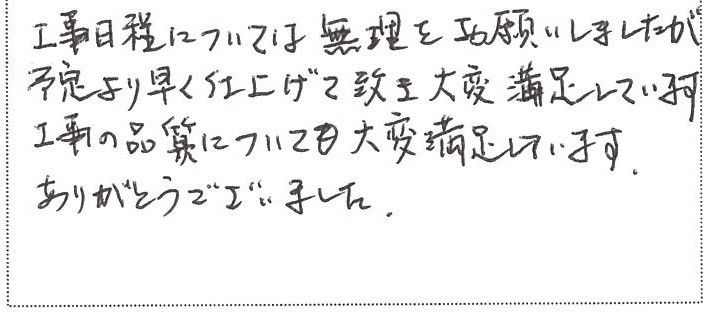 工事日程については無理をお願いしましたが
予定より早く仕上げて致き大変満足しています
工事の品質についても大変満足しています.
ありがとうございました.